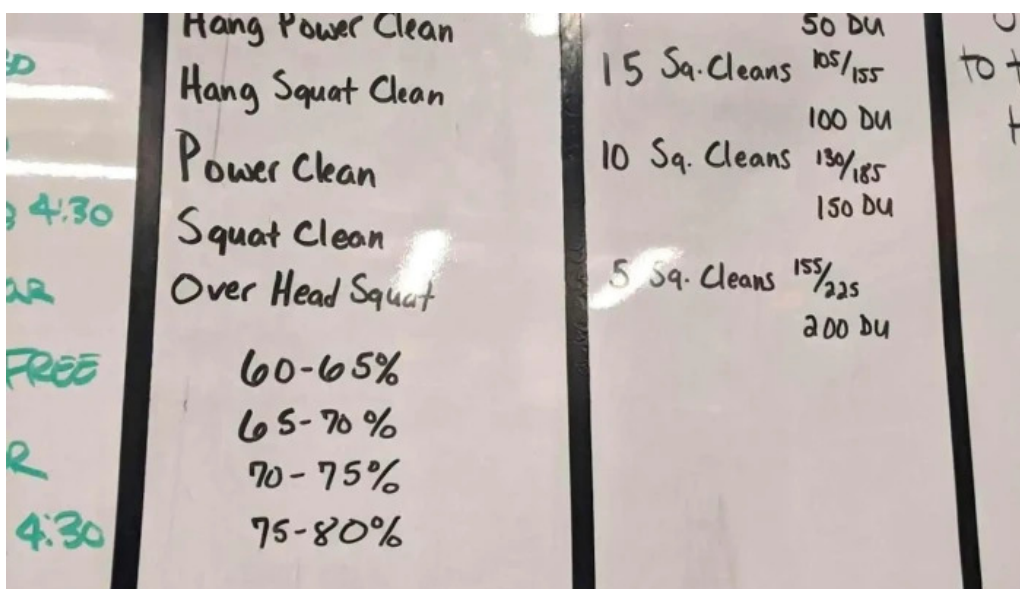 4:30
FREE
R
4:30
Hang Power Clean
Hang Squat Clean
Power Clean
Squat Clean
Over Head Squat
60-65%
65-70%
70-75%
75-80%
50 DU
15 Sq. Cleans 105/155
100 DU
10 Sq. Cleans 130/185
150 DU
5 Sq. Cleans 155/225
200 DU
to